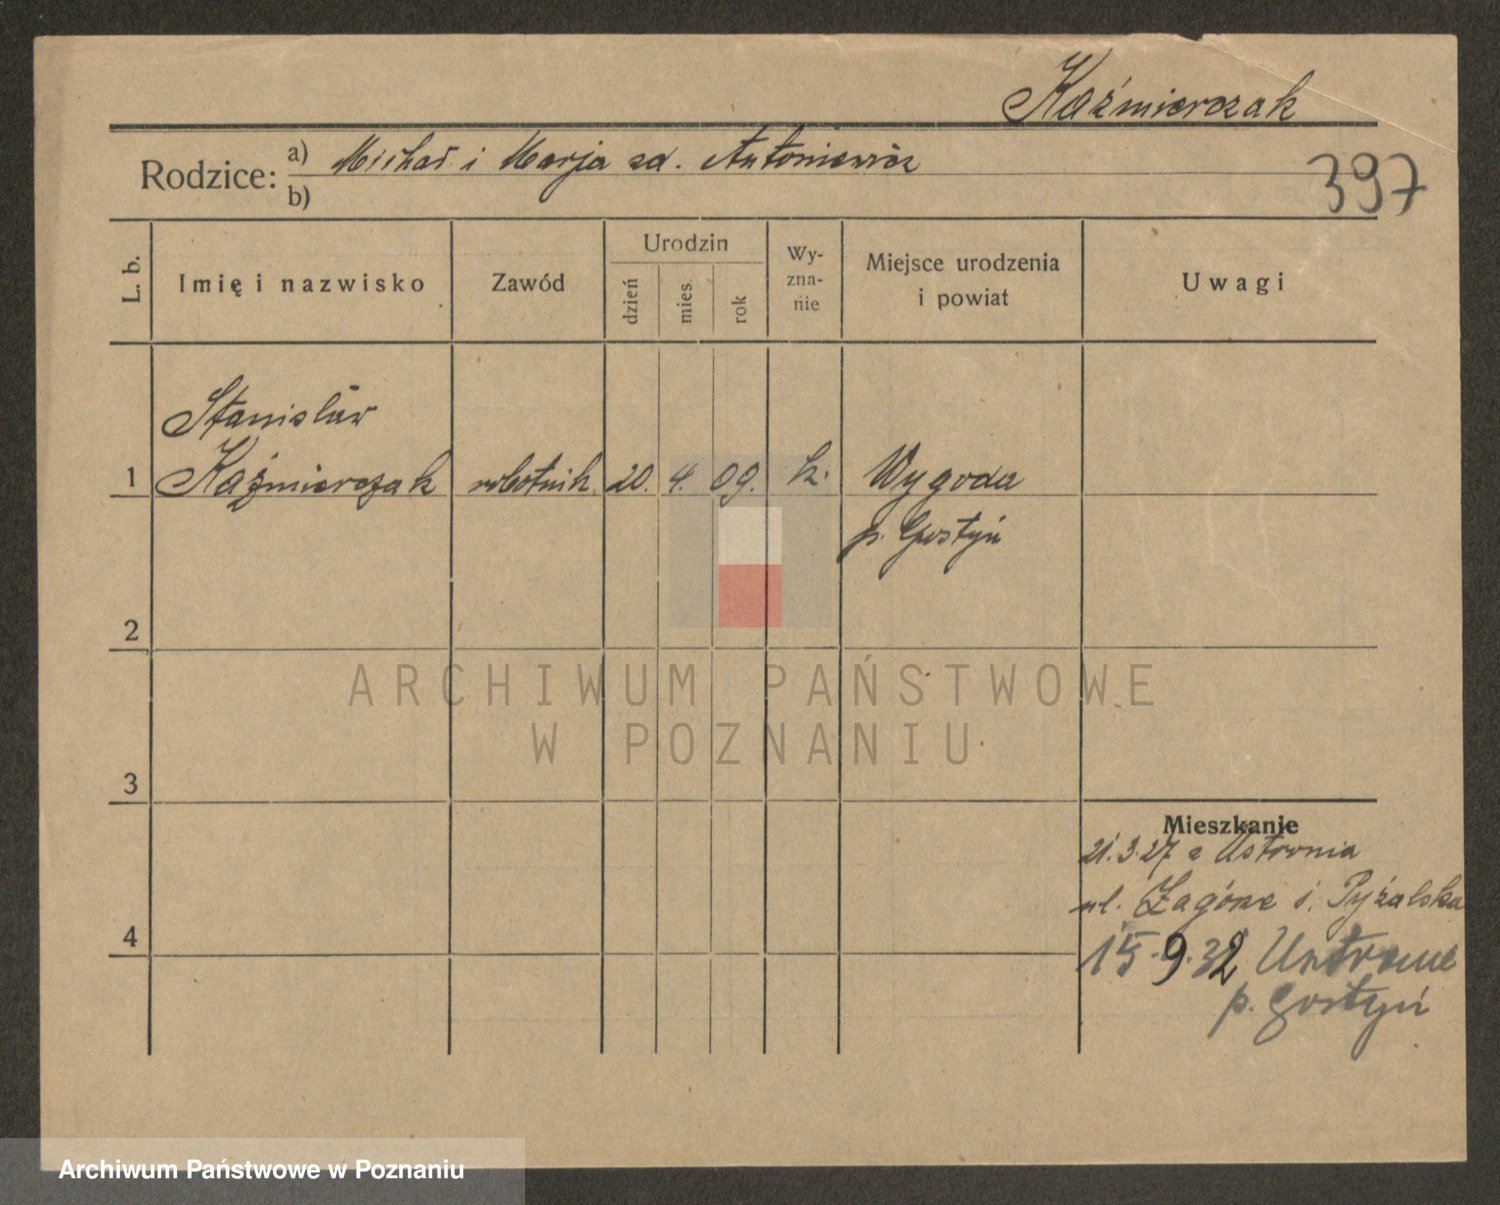 Kaźmierczak
Rodzice: a) Michał i Marja zd. Antoniewicz
b)
397
L. b. Imię i nazwisko Zawód Urodzin dzień mies. rok Wyznanie Miejsce urodzenia i powiat Uwagi
Stanisław
1 Kaźmierczak robotnik. 20. 4. 09. k. Wygoda
p. Gostyń
2
ARCHIWUM PAŃSTWOWE
W POZNANIU
3
Mieszkanie
21.3.27 z Ustronia
ul. i. Pyżalska
4
15.9.32
p. Gostyń
Archiwum Państwowe w Poznaniu